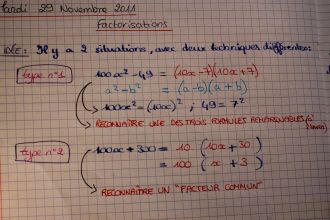 Mardi 29 Novembre 2011
Factorisations
IDÉE: Il y a 2 situations, avec deux techniques différentes:
type n°1
100x² - 49 = (10x - 7)(10x + 7)
a² - b² = (a - b)(a + b)
100x² = (10x)² ; 49 = 7²
RECONNAÎTRE UNE DES TROIS FORMULES REMARQUABLES
type n°2
100x + 300 = 10 (10x + 30)
= 100 (x + 3)
RECONNAÎTRE UN "FACTEUR COMMUN"